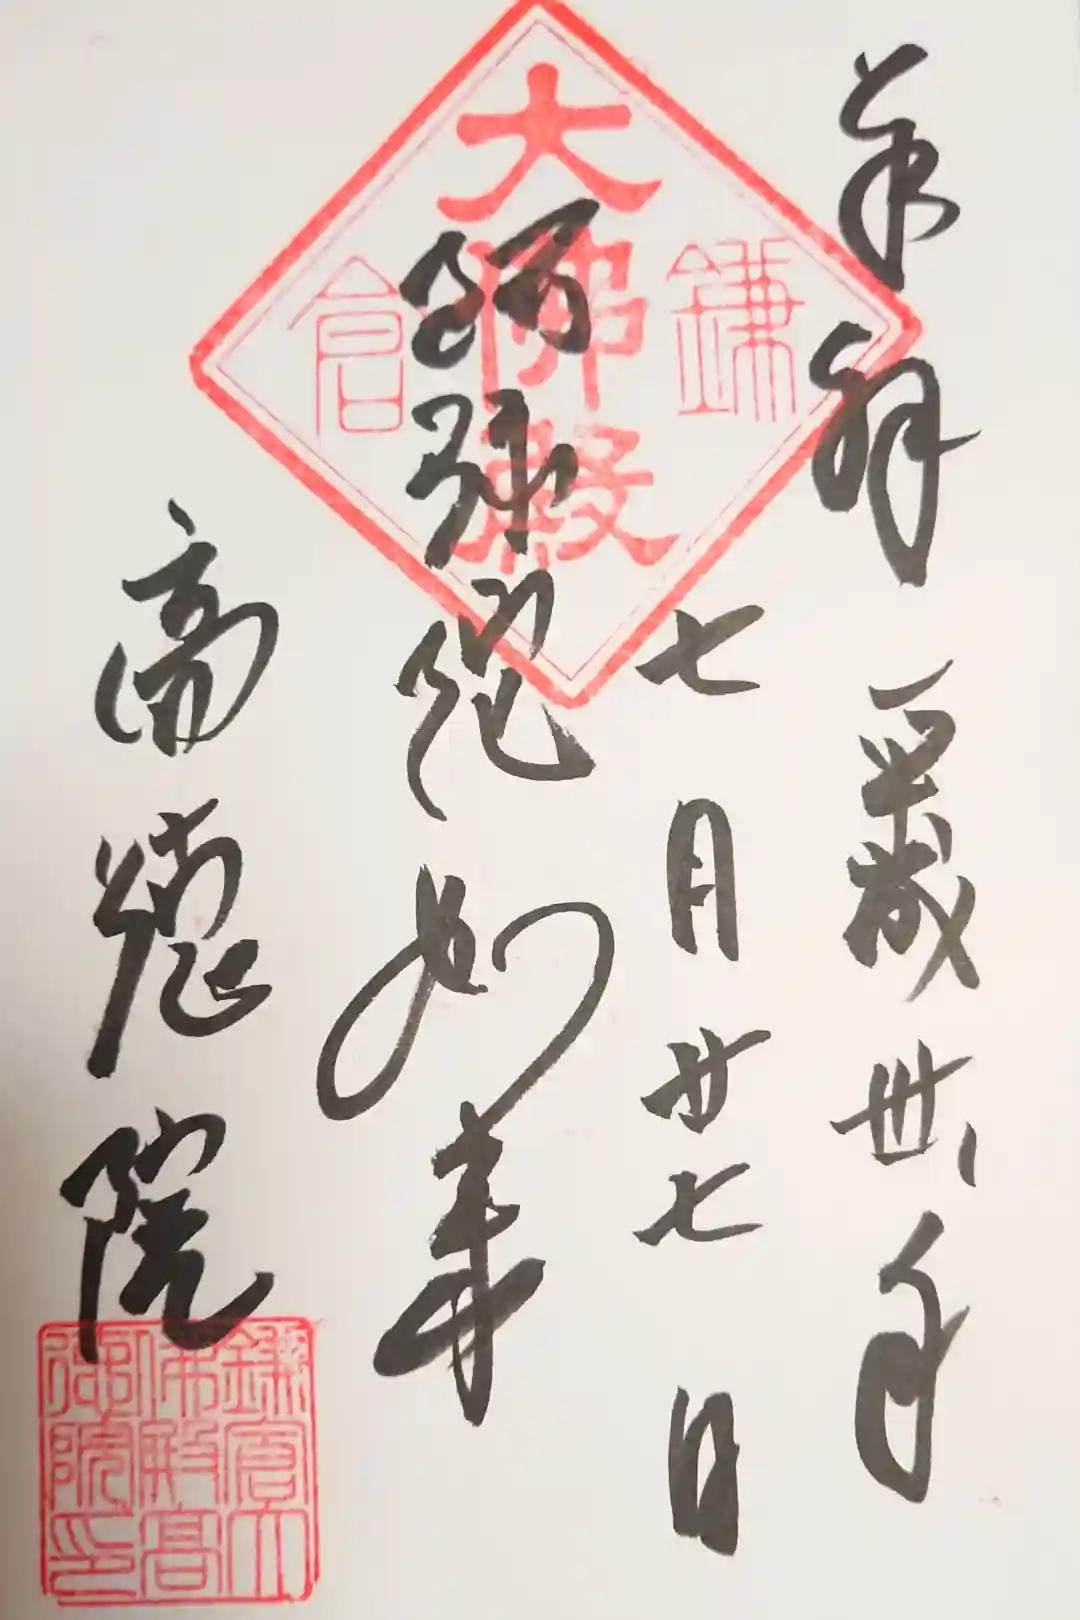 奉拝 平成卅年
七月廿七日
鎌倉
大佛殿
阿弥陀如来
高徳院
鎌倉大
佛殿高
徳院印